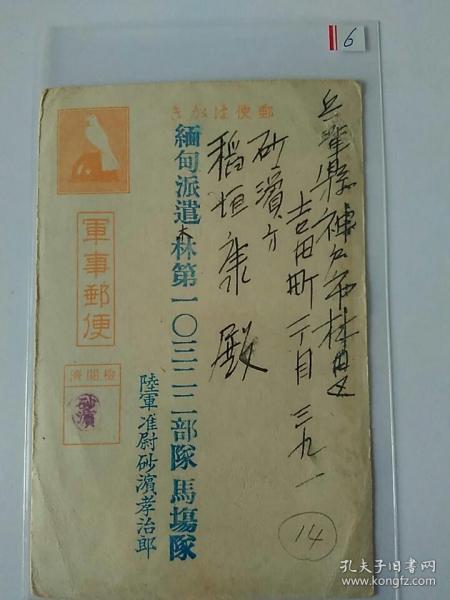 6
郵便はがき
兵庫縣神戸市林田区
吉田町丁目三九一
砂濱方
稲垣康殿
緬甸派遣林第一〇三二二部隊馬塲隊
陸軍准尉砂濱孝治郎
軍事郵便
檢閲濟
砂濱
14
孔夫子旧书网
www.kongfz.com